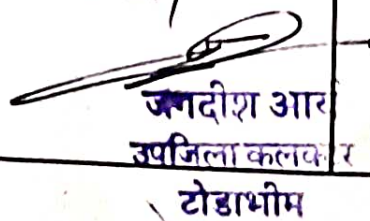 जगदीश आर
उपजिला कलक्टर
टोडाभीम